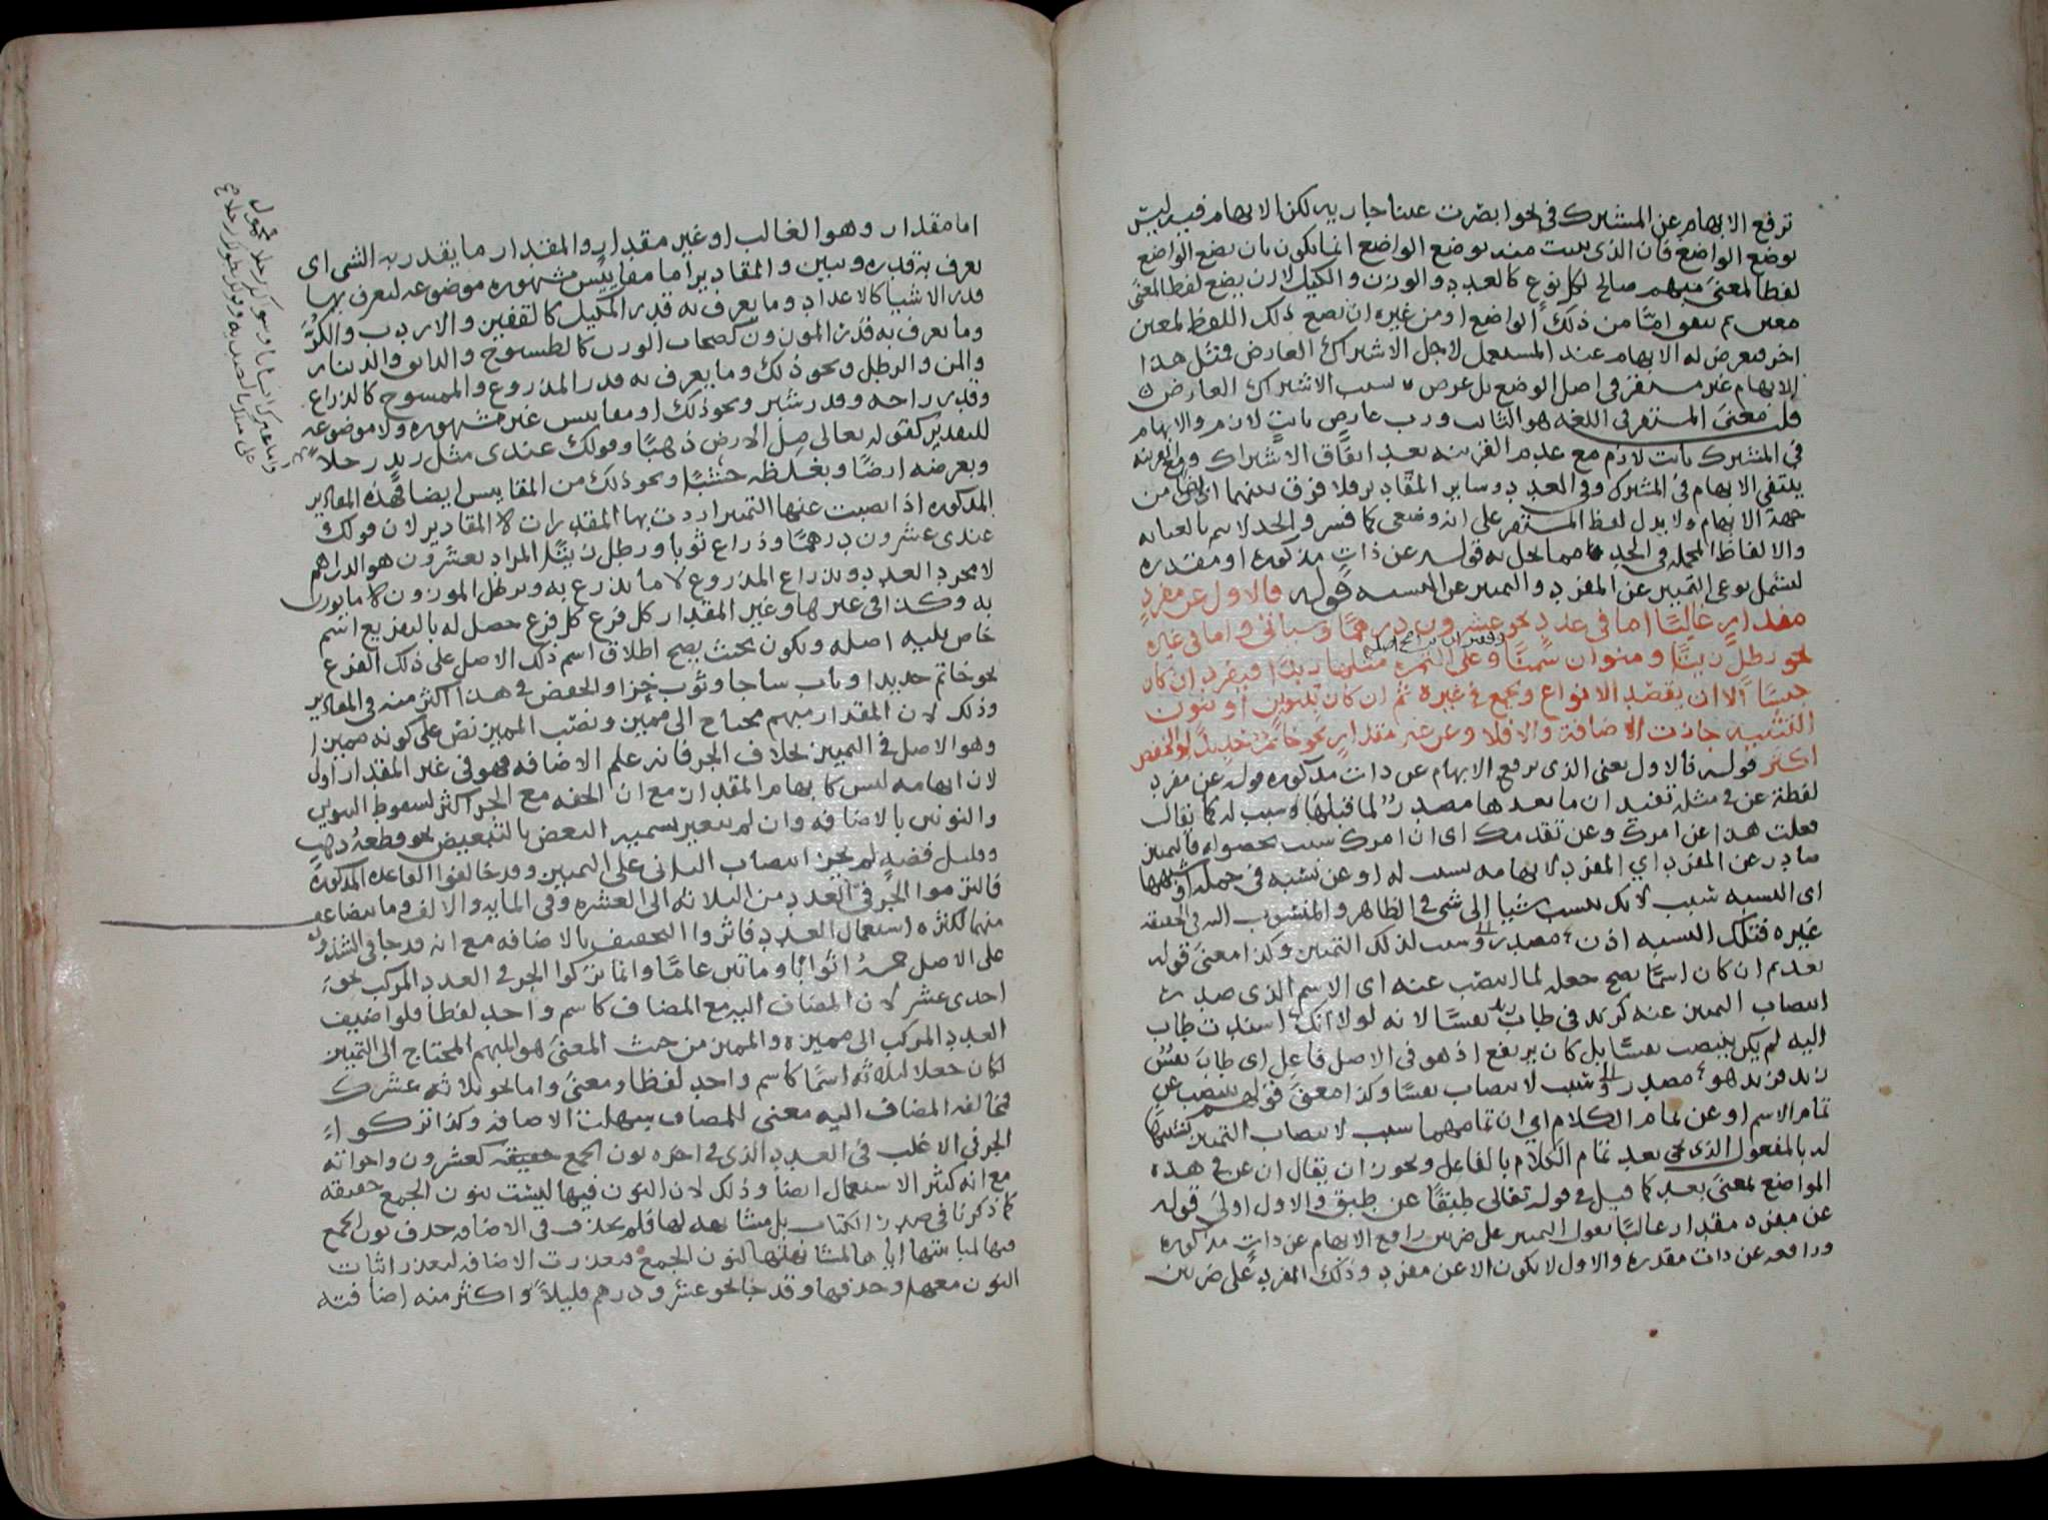 ترفع الابهام عن المشترك في نحو ابصرت عينا جارية لكن الابهام فيه ليس
بوضع الواضع فان الذى يثبت منه بوضع الواضع انما يكون بان يضع الواضع
لفظا لمعنى مبهم صالح لكل نوع كالعدد والوزن والكيل لا ان يضع لفظا لمعنى
معين ثم يتفق اما من ذلك الواضع او من غيره ان يضع ذلك اللفظ لمعين
اخر فيعرض له الابهام عند المستعمل لاجل الاشتراك العارض فمثل هذا
الابهام غير مستقر في اصل الوضع بل عرض بسبب الاشتراك العارض
قلت معنى المستقر في اللغة هو الثابت ورب عارض ثابت لازم والابهام
في المشترك ثابت لازم مع عدم القرينة بعد اتفاق الاشتراك ومع القرينة
ينتفي الابهام في المشترك وفي العدد وساير المقادير فلا فرق بينهما ايضا من
جهة الابهام ولا يدل لفظ المستقر على انه وضعى كما فسر والحد لا يتم بالعناية
والالفاظ المجملة في الحد مما يخل به قوله عن ذات مذكورة او مقدرة
ليشمل نوعى التمييز عن المفرد والتمييز عن النسبة قوله فالاول عن مفرد
مقدار غالبا اما في عدد نحو عشرون درهما وسياتي واما في غيره
نحو رطل زيتا ومنوان سمنا وعلى التمرة مثلها زبدا فيفرد ان كان
جنسا الا ان يقصد الانواع ويجمع في غيره ثم ان كان بتنوين او بنون
التثنية جازت الاضافة والا فلا وعن غير مقدار نحو خاتم حديدا والخفض
اكثر قوله فالاول يعنى الذى يرفع الابهام عن ذات مذكورة قوله عن مفرد
لفظة عن في مثله تفيد ان ما بعدها مصدر لما قبلها وسبب له كما يقال
فعلت هذا عن امرك وعن تقدمك اى ان امرك سبب لحصوله فالتمييز
صادر عن المفرد اي المفرد لابهامه سبب له او عن نسبة في جملة او شبهها
اى النسبة سبب لانك تنسب شيا الى شى في الظاهر والمنسوب اليه في الحقيقة
غيره فتلك النسبة اذن مصدر وسبب لذلك التمييز وكذا معنى قوله
بعد ثم ان كان اسما يصح جعله لما انتصب عنه اى الاسم الذى صدر
انتصاب التمييز عنه كزيد في طاب زيد نفسا لانه لولا انك اسندت طاب
اليه لم يكن ينتصب نفسا بل كان يرتفع اذ هو في الاصل فاعل اى طاب نفس
زيد فزيد هو مصدر وسبب لانتصاب نفسا وكذا معنى قولهم ينتصب عن
تمام الاسم او عن تمام الكلام اي ان تمامهما سبب لانتصاب التمييز تشبيها
له بالمفعول الذى يجى بعد تمام الكلام بالفاعل ويجوز ان يقال ان عن في هذه
المواضع لمعنى بعد كما قيل في قوله تعالى طبقا عن طبق والاول اولى قوله
عن مفرد مقدار غالبا نقول التمييز على ضربين رافع الابهام عن ذات مذكورة
ورافعه عن ذات مقدرة والاول لا يكون الا عن مفرد وذلك المفرد على ضربين
اما مقدار وهو الغالب او غير مقدار والمقدار ما يقدر به الشى اى
يعرف به قدره ويبين والمقادير اما مقاييس مشهورة موضوعة ليعرف بها
قدر الاشيا كالاعداد وما يعرف به قدر المكيل كالقفيز والاردب والكر
وما يعرف به قدر الموزون كصنجات الوزن كالطسوج والدانق والدينار
والمن والرطل ونحو ذلك وما يعرف به قدر المذروع والممسوح كالذراع
وقدر راحة وقدر شبر ونحو ذلك او مقاييس غير مشهورة ولا موضوعة
للتقدير كقوله تعالى مل الارض ذهبا وقولك عندى مثل زيد رجلا
وبعرضه ارضا وبغلظه خشبا ونحو ذلك من المقاييس ايضا فهذه المقادير
المذكورة اذا نصبت عنها التمييز اردت بها المقدرات لا المقادير لان قولك
عندى عشرون درهما وذراع ثوبا ورطل زيتا المراد بعشرون هو الدراهم
لا مجرد العدد وبذراع المذروع لا ما يذرع به وبرطل الموزون لا ما يوزن
به وكذا في غيرها وغير المقدار كل فرع حصل له بالتفريع اسم
خاص يليه اصله ويكون بحيث يصح اطلاق اسم ذلك الاصل على ذلك الفرع
نحو خاتم حديدا وباب ساجا وثوب خزا والخفض في هذا اكثر منه في المقادير
وذلك لان المقدار مبهم محتاج الى مميز ونصب المميز نص على كونه مميزا
وهو الاصل في التمييز بخلاف الجر فانه علم الاضافة فهو في غير المقدار اولى
لان ابهامه ليس كابهام المقدار مع ان الخفة مع الجر اكثر لسقوط التنوين
والنونين بالاضافة وان لم يتغير تسمية البعض بالتبعيض نحو قطعة ذهب
وقليل فضة لم يجز انتصاب الثاني على التمييز وقد خالفوا القاعدة المذكورة
فالتزموا الجر في العدد من الثلاثة الى العشرة وفي المايه والالف وما يتضاعف
منهما لكثرة استعمال العدد فاثروا التخفيف بالاضافة مع انه قد جا في الشذوذ
على الاصل خمسة اثوابا وماتين عاما وانما تركوا الجر في العدد المركب نحو
احدى عشر لان المضاف اليه مع المضاف كاسم واحد لفظا فلو اضيف
العدد المركب الى مميزه والمميز من حيث المعنى هو المبهم المحتاج الى التمييز
لكان جعلا لثلاثة اسما كاسم واحد لفظا ومعنى واما نحو ثلاثة عشرك
فتخالف المضاف اليه معنى للمضاف سهلت الاضافة وكذا تركوا
الجر في الاغلب في العدد الذى في اخره نون الجمع حقيقة كعشرون واخواته
مع انه كثير الاستعمال ايضا وذلك لان النون فيها ليست بنون الجمع حقيقة
كما ذكرنا في صدر الكتاب بل مشابهة لها فلم يحذف في الاضافة حذف نون الجمع
فيها لمباينتها اياها لمشابهتها لنون الجمع فتعذرت الاضافة لتعذر اثبات
النون معها وحذفها وقد جا نحو عشرو درهم قليلا واكثر منه اضافته